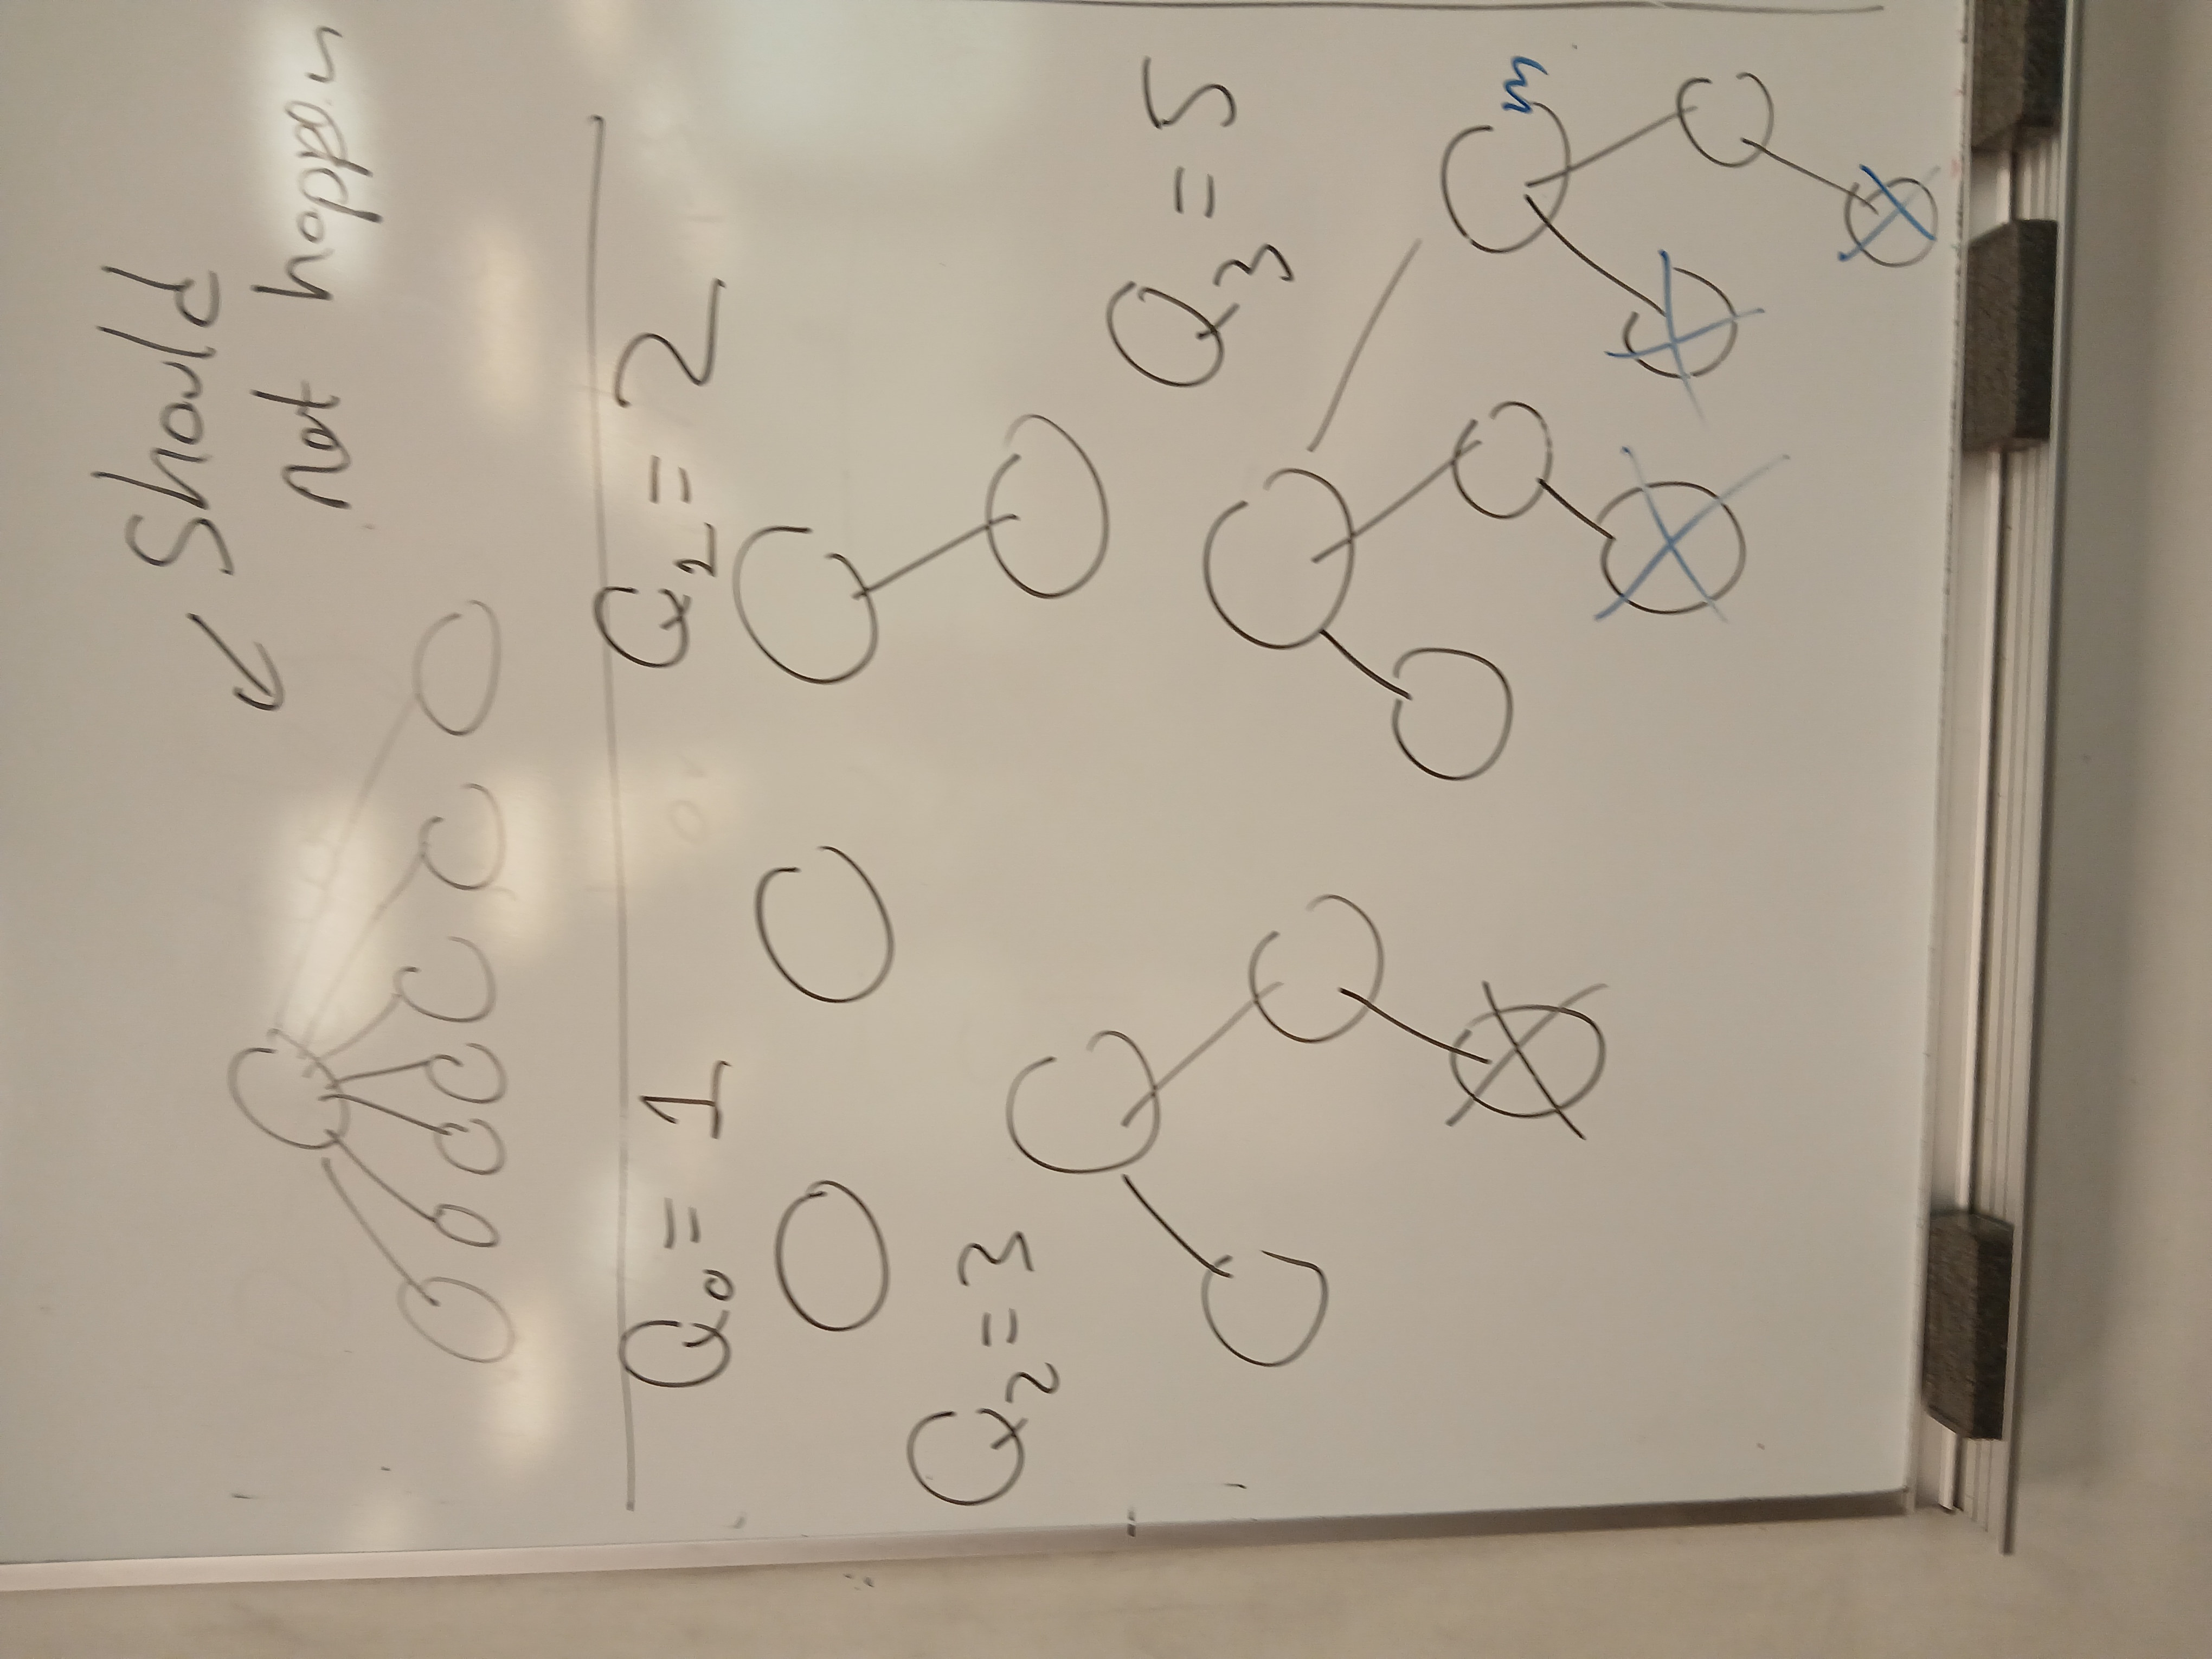 Should
not happen
Q₀ = 1
Q₁ = 2
Q₂ = 3
Q₃ = 5
m